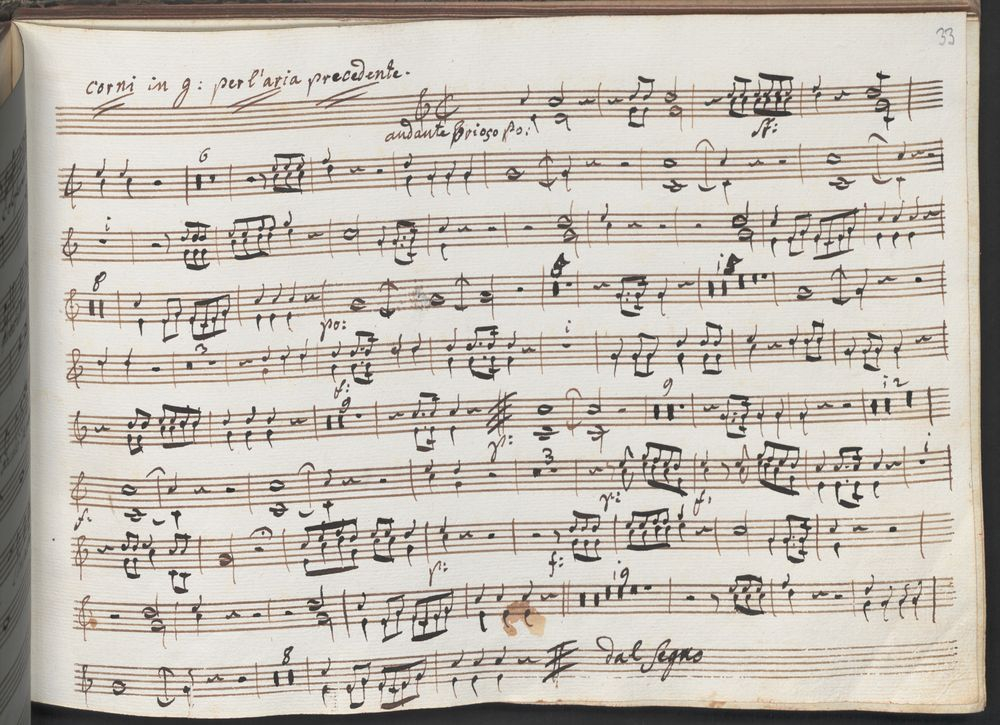 33
corni in g: per l'aria precedente.
andante brioso po:
sf:
6
i
8
po:
3 i
f:
9 9 i2
p:
3 i
f: p: f:
p: f:
i9
8 dal Segno